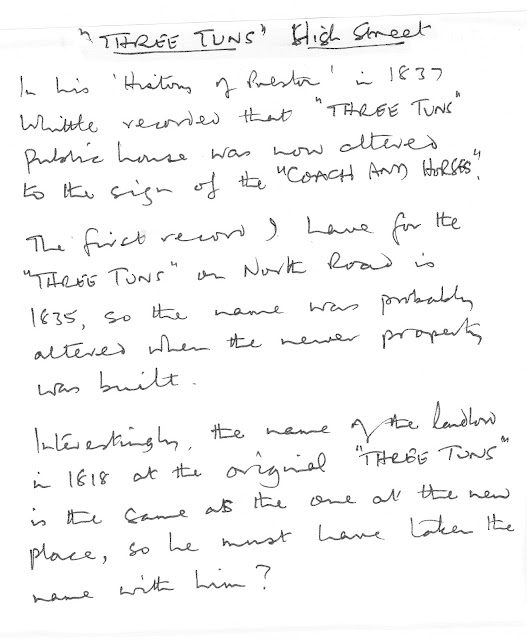 "THREE TUNS" High Street
In his 'History of Preston' in 1837
Whittle recorded that "THREE TUNS"
public house was now altered
to the sign of the "COACH AND HORSES".
The first record I have for the
"THREE TUNS" on North Road is
1835, so the name was probably
altered when the newer property
was built.
Interestingly, the name of the landlord
in 1818 at the original "THREE TUNS"
is the same as the one at the new
place, so he must have taken the
name with him?